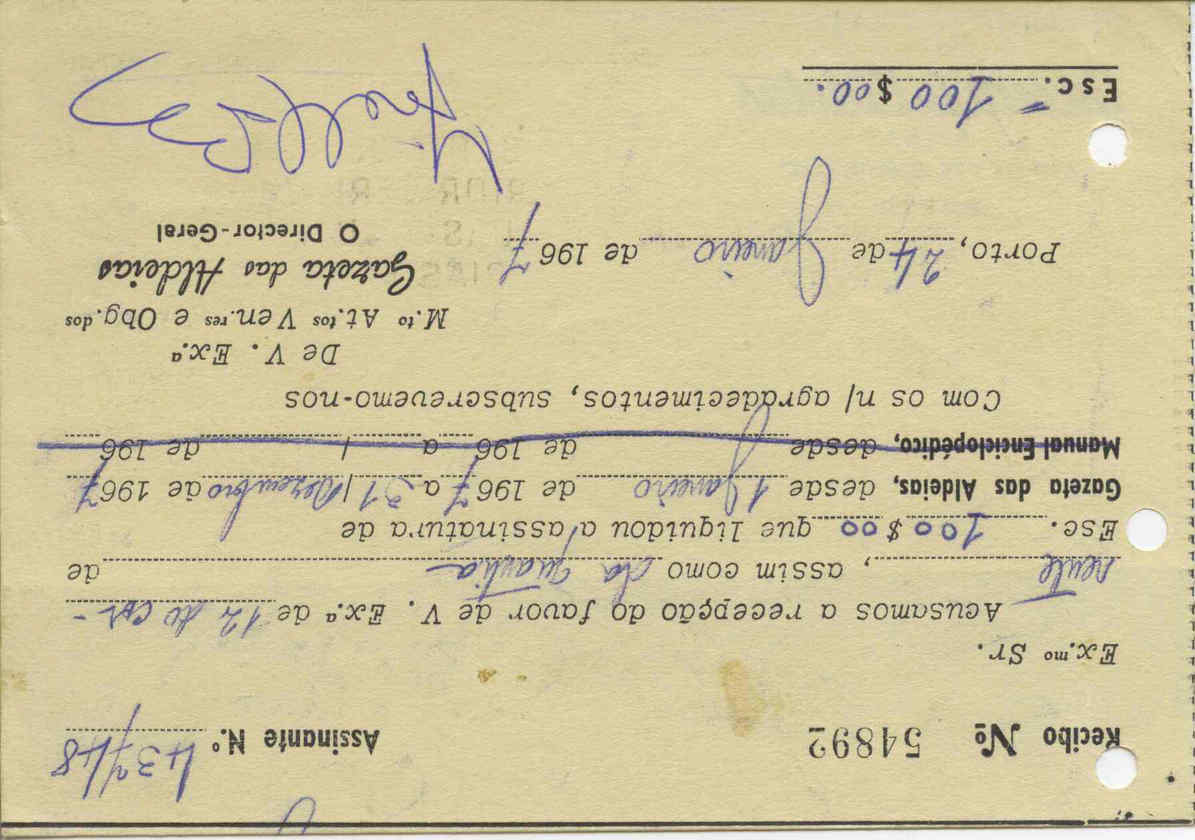 Recibo Nº 54892 Assinante N.º 43748
Ex.mo Sr.
Acusamos a recepção do favor de V. Ex.ª de 12 do cor-
rente, assim como da quantia de
Esc. 100$00 que liquidou a assinatura de
Gazeta das Aldeias, desde 1 Janeiro de 1967 a 31/Dezembro de 1967
Manual Enciclopédico, desde de 196 a / de 196
Com os n/ agradecimentos, subscrevemo-nos
De V. Ex.ª
M.to At.tos Ven.res e Obg.dos
Gazeta das Aldeias
O Director-Geral
Porto, 24 de Janeiro de 1967
Esc. 100$00.